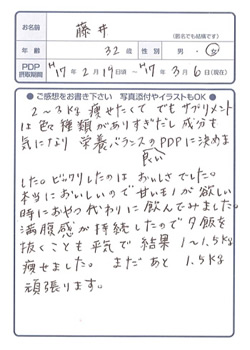 お名前 藤井 (匿名でも結構です)
年齢 32歳 性別 男・女
PDP摂取期間 H17年2月14日頃〜H17年3月6日(現在)
●ご感想をお書き下さい 写真添付やイラストもOK●
2〜3kg 痩せたくて でもサプリメント
は色々種類がありすぎだし成分も
気になり 栄養バランスの良いPDPに決めま
した。ビックリしたのは おいしさでした。
本当においしいので甘いモノが欲しい
時におやつ代わりに飲んでみました。
満腹感が持続したので夕飯を
抜くことも平気で 結果 1〜1.5kg
痩せました。 まだあと 1.5kg
頑張ります。